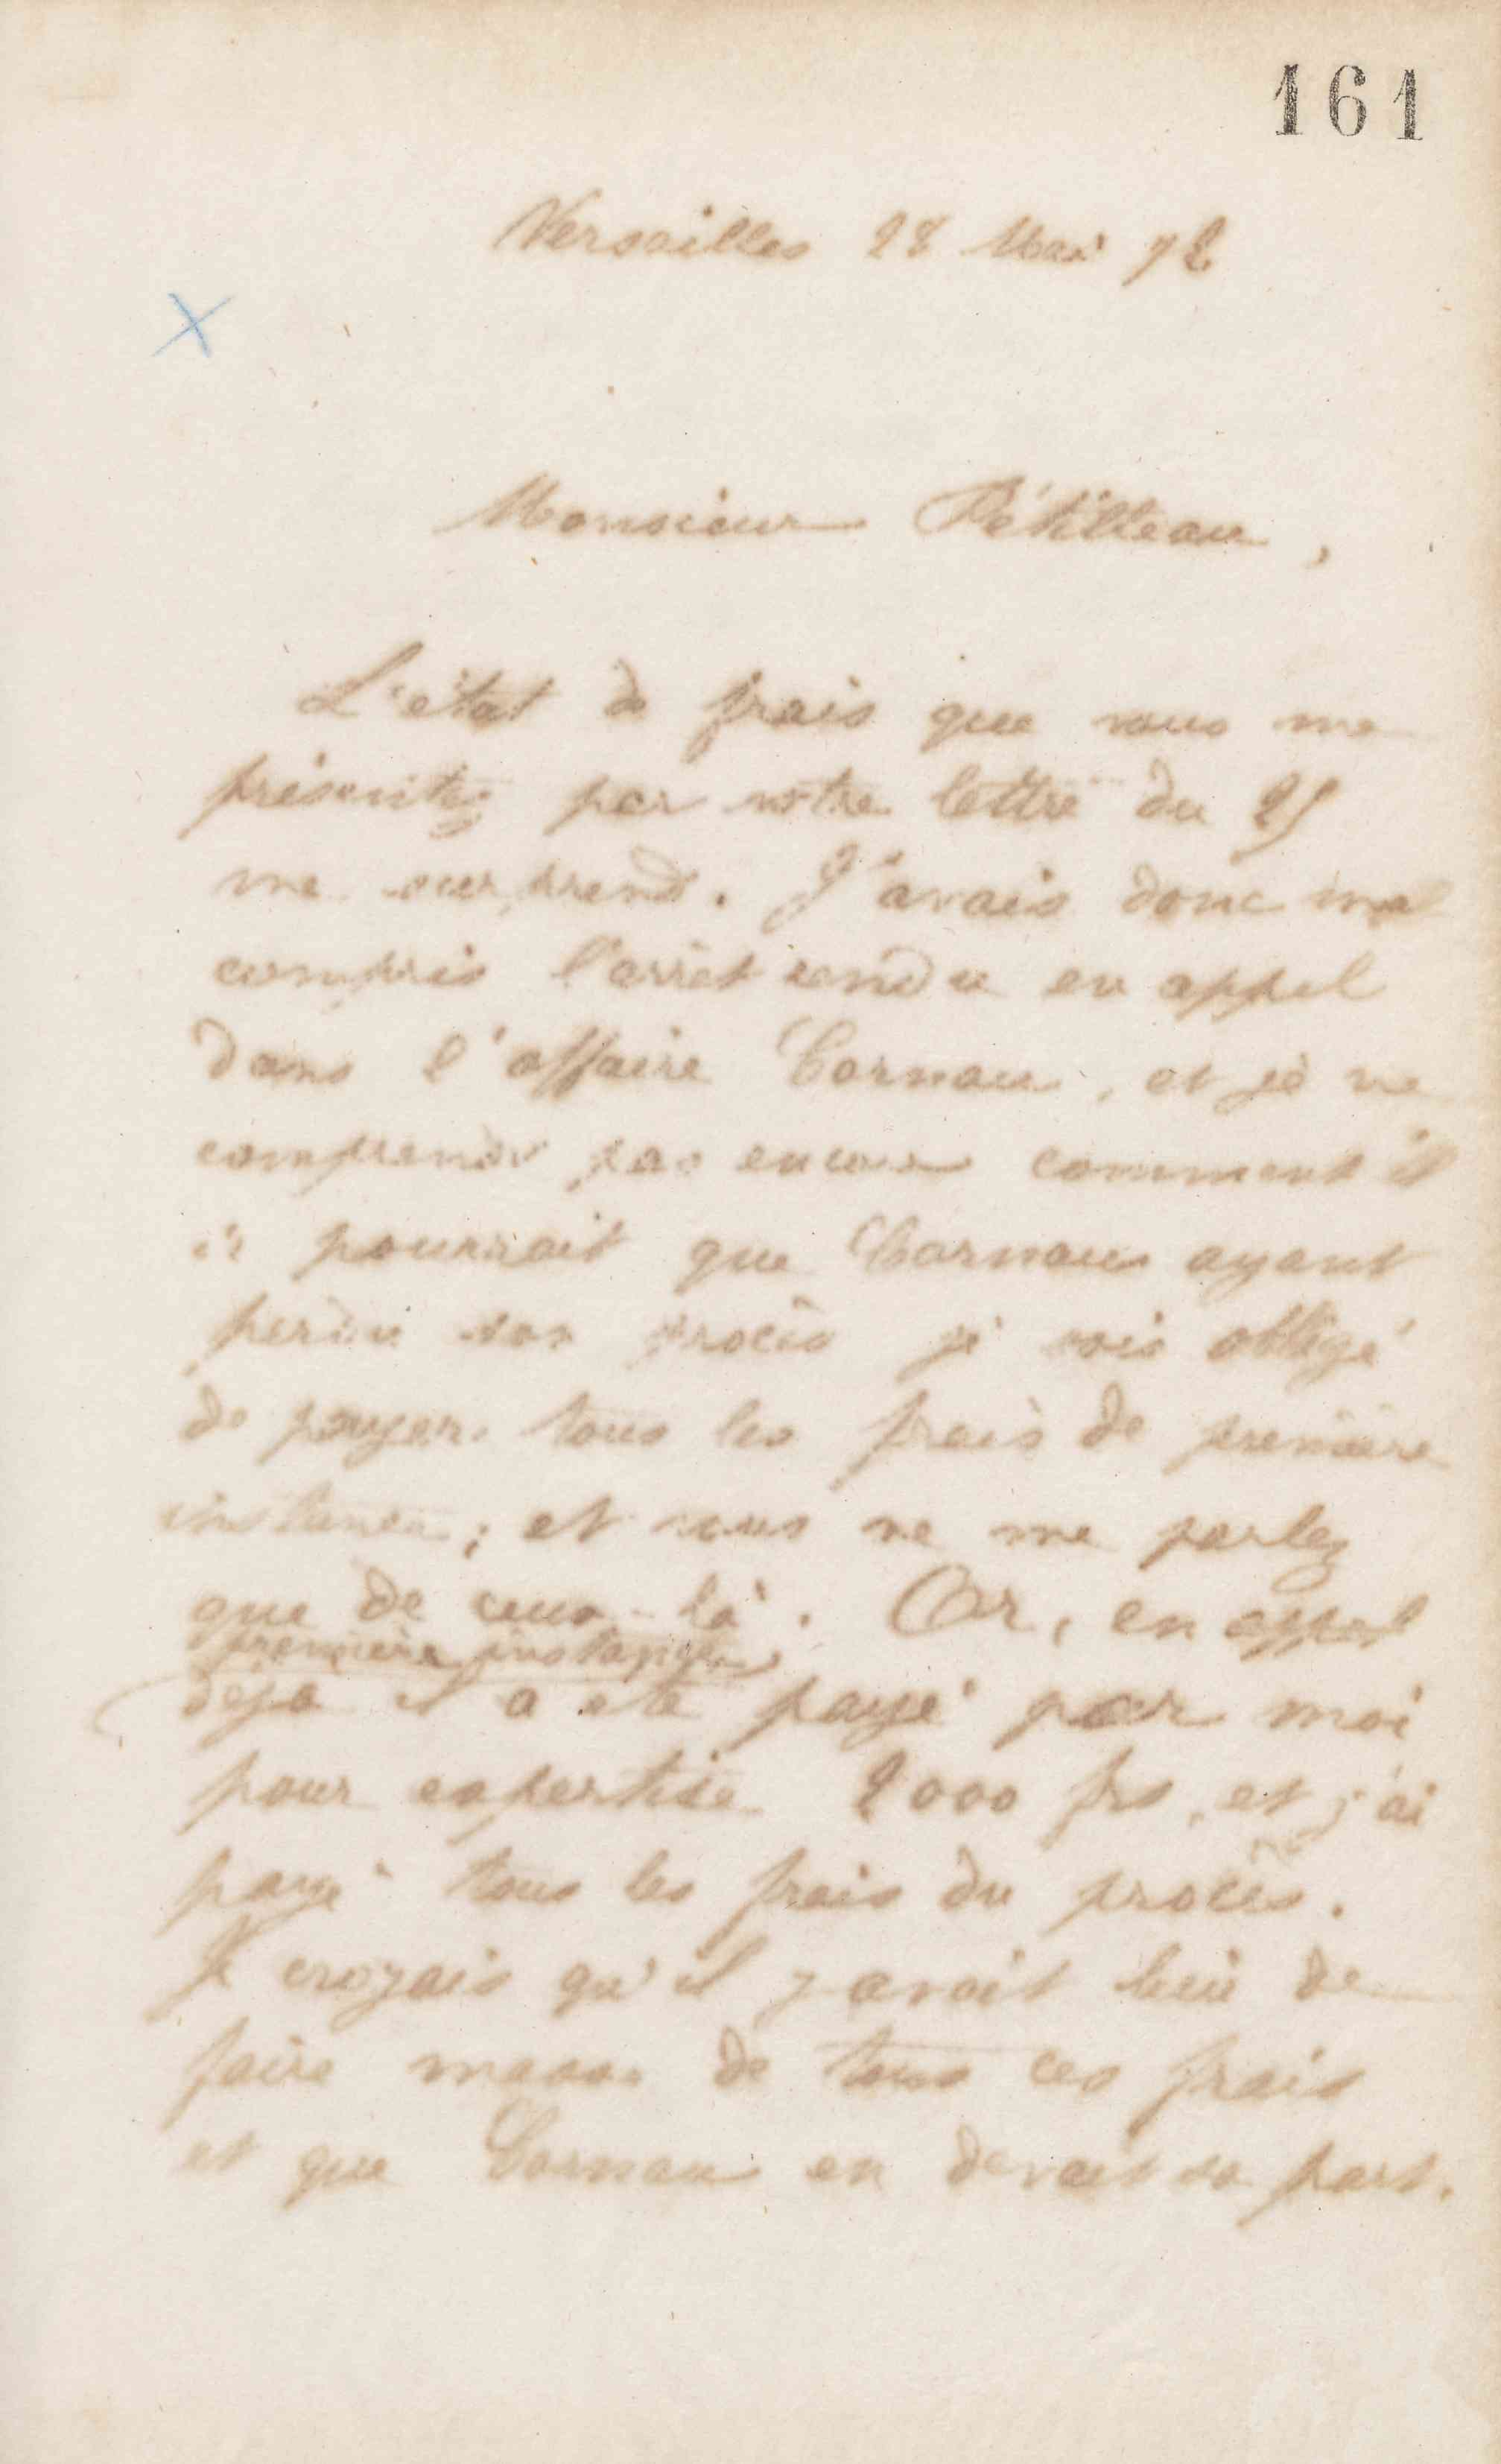 161
Versailles 28 Mai 72
Monsieur Pétilleau,
L'état de frais que vous me
présentez par votre lettre du 25
me surprend. J'avais donc mal
compris l'arrêt rendu en appel
dans l'affaire Cornau, et je ne
comprends pas encore comment il
se pourrait que Cornau ayant
perdu son procès je sois obligé
de payer tous les frais de première
instance ; et vous ne me parlez
que de ceux-là. Or, en appel
première instance
déjà il a été payé par moi
pour expertise 2000 frs, et j'ai
payé tous les frais du procès.
Je croyais qu'il y avait lieu de
faire masse de tous ces frais
et que Cornau en devait sa part.